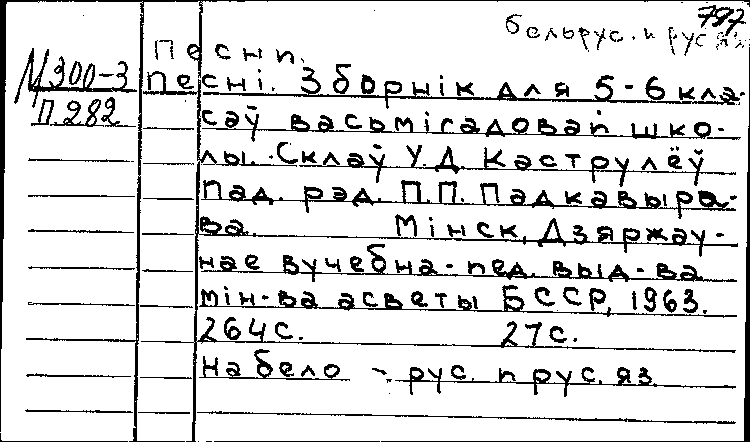 797
бельрус. и рус яз
Песни.
М 300-3 Песні. Зборнік для 5-6 кла-
П.282 саў васьмігадовай шко-
лы. Склаў У.Д. Каструлёў
Пад. рэд. П.П. Падкавыра-
ва. Мінск, Дзяржаў-
нае вучебна-пед. выд-ва
мін-ва асветы БССР, 1963.
264с. 27с.
На бело-рус. и рус. яз.